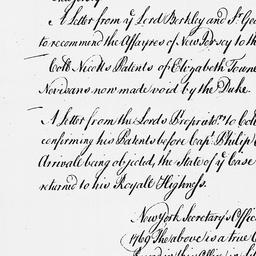 A letter from yͤ Lord Berkley and Sr. Geo
to recommend the Affayres of New Jersey to th
Coll. Nicolls Patents of Elizabeth Towne
Nevisans now made void by the Duke.
A letter from the Lords Proprietrs. to Coll
confirming his Patents before Capt. Philip C
Arrivale being objected, the State of yͤ Case
returned to his Royall Highness.
New York Secretary's Offic
1769 The above is a true C